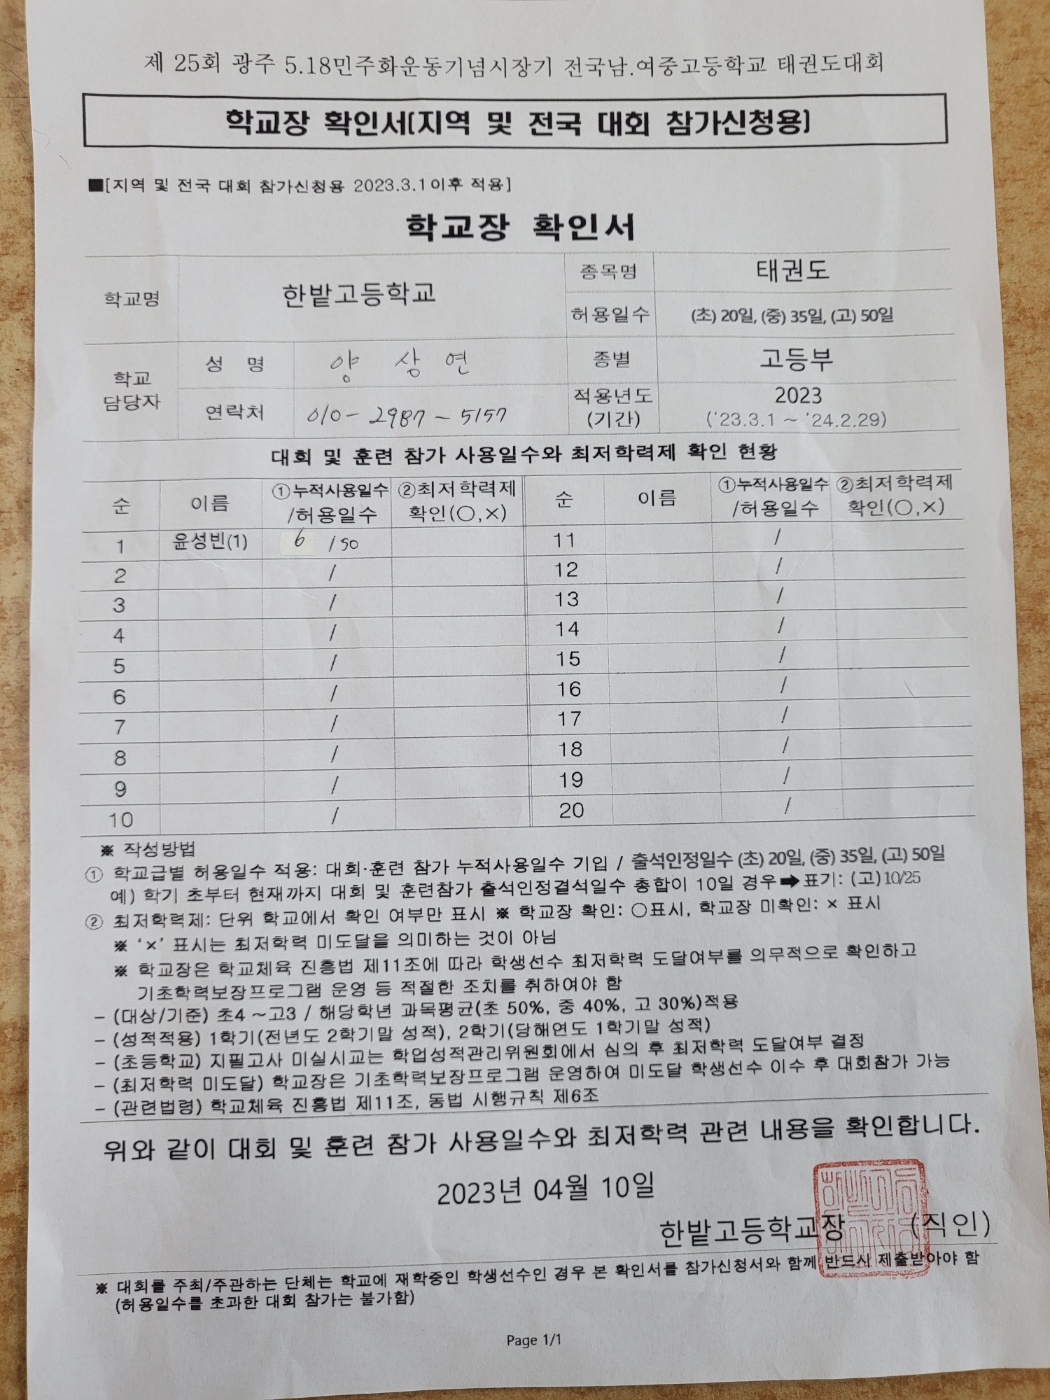 제 25회 광주 5.18민주화운동기념시장기 전국남.여중고등학교 태권도대회
학교장 확인서(지역 및 전국 대회 참가신청용)
■[지역 및 전국 대회 참가신청용 2023.3.1이후 적용]
학교장 확인서
학교명 한밭고등학교 종목명 태권도
허용일수 (초) 20일, (중) 35일, (고) 50일
학교 담당자 성 명 양 상 연 종별 고등부
연락처 010-2987-5157 적용년도 (기간) 2023 ('23.3.1 ~ '24.2.29)
대회 및 훈련 참가 사용일수와 최저학력제 확인 현황
순 이름 ①누적사용일수 /허용일수 ②최저학력제 확인(○,×) 순 이름 ①누적사용일수 /허용일수 ②최저학력제 확인(○,×)
1 윤성빈(1) 6 / 50 11 /
2 / 12 /
3 / 13 /
4 / 14 /
5 / 15 /
6 / 16 /
7 / 17 /
8 / 18 /
9 / 19 /
10 / 20 /
※ 작성방법
① 학교급별 허용일수 적용: 대회·훈련 참가 누적사용일수 기입 / 출석인정일수 (초) 20일, (중) 35일, (고) 50일
예) 학기 초부터 현재까지 대회 및 훈련참가 출석인정결석일수 총합이 10일 경우➡표기: (고)10/25
② 최저학력제: 단위 학교에서 확인 여부만 표시 ※ 학교장 확인: ○표시, 학교장 미확인: × 표시
※ '×' 표시는 최저학력 미도달을 의미하는 것이 아님
※ 학교장은 학교체육 진흥법 제11조에 따라 학생선수 최저학력 도달여부를 의무적으로 확인하고
기초학력보장프로그램 운영 등 적절한 조치를 취하여야 함
- (대상/기준) 초4 ~고3 / 해당학년 과목평균(초 50%, 중 40%, 고 30%)적용
- (성적적용) 1학기(전년도 2학기말 성적), 2학기(당해연도 1학기말 성적)
- (초등학교) 지필고사 미실시교는 학업성적관리위원회에서 심의 후 최저학력 도달여부 결정
- (최저학력 미도달) 학교장은 기초학력보장프로그램 운영하여 미도달 학생선수 이수 후 대회참가 가능
- (관련법령) 학교체육 진흥법 제11조, 동법 시행규칙 제6조
위와 같이 대회 및 훈련 참가 사용일수와 최저학력 관련 내용을 확인합니다.
2023년 04월 10일
한밭고등학교장 (직인)
※ 대회를 주최/주관하는 단체는 학교에 재학중인 학생선수인 경우 본 확인서를 참가신청서와 함께 반드시 제출받아야 함
(허용일수를 초과한 대회 참가는 불가함)
Page 1/1